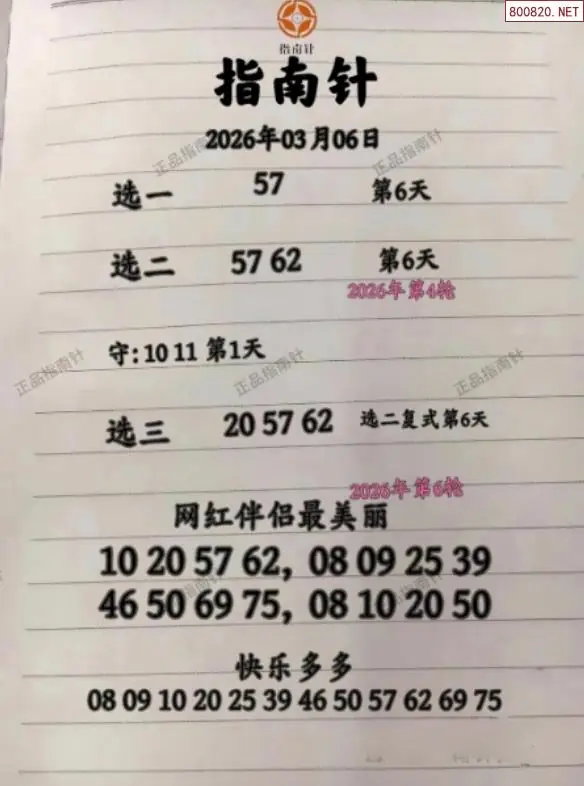 800820.NET
指南针
指南针
2026年03月06日
正品指南针 正品指南针
选一 57 第6天
选二 57 62 第6天
2026年第4轮
守:10 11 第1天
正品指南针 正品指南针 正品指南针
选三 20 57 62 选二复式第6天
2026年第6轮
网红伴侣最美丽
10 20 57 62, 08 09 25 39
46 50 69 75, 08 10 20 50
正品指南针 正品指南针
快乐多多
08 09 10 20 25 39 46 50 57 62 69 75